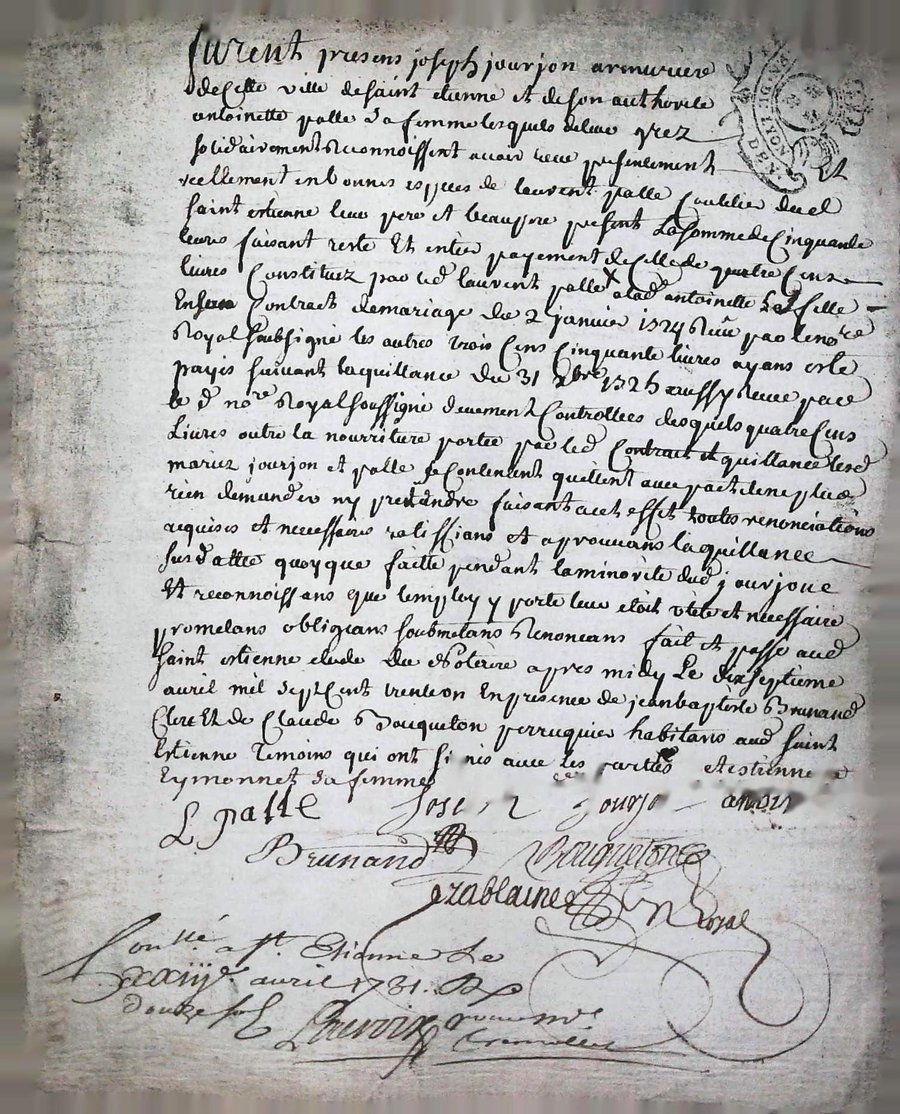 furent presens joseph jourjon armuriere
de cette ville de saint etienne et de son authorite
antoinette palle sa femme lesquels de leur grez
solidairement Reconnoissent avoir reçeu presentement Et
reellement en bonnes espçes de laurent palle Coutelier dud
saint estienne leur pere et beaupere present La somme de Cinquante
livres faisant reste Et entier payement de Celle de quatre Cens
livres Constituez par led laurent palle a lad antoinette palle
En son Contract de mariage du 2 janvier 1724 Reçeu par le no.re
Royal soubsigné les autres trois Cens Cinquante livres ayans esté
payés suivant la quittance du 31 xbre 1725 aussy Reçeue par
le d no.re Royal soussigné deuement Controllées desquels quatre Cens
Livres outre la nourriture portée par led Contract et quittance lesd
mariez jourjon et palle se Contentent quittent avec pact de ne plus
rien demander ny pretendre faisant a cet effet toutes renonciations
requises et necessaires ratiffians et aprouvans la quittance
susdattée quoyque faitte pendant la minorité dud jourjon
Et reconnoissans que l'employ y porté leur etoit utile et necessaire
promettans obligeans soubmettans Renonceans fait et passé aud
saint estienne etude du No.re apres midy Le dix septieme
avril mil sept Cent trente un En presence de jean baptiste Brunand
Clerc Et de Claude Bouqueton perruquier habitans aud saint
Estienne Temoins qui ont signés avec les parties et estienne
Eymonnet sa femme
L palle Jose Jourjo
Brunand Bouqueton
Royal
Con.lé a St. Etienne Le
xxiij.e avril 1731. R
douze sols